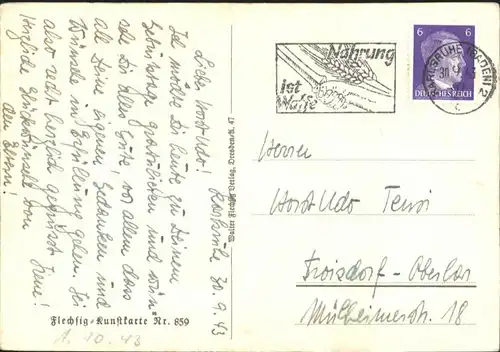 Karlsruhe 30.9.43
Lieber Horst Udo!
Ich möchte Dir heute zu Deinem
Geburtstag gratulieren und wünsche
Dir alles Gute, vor allem dass
all Deine eigenen Gedanken und
Wünsche in Erfüllung gehen. Sei
also recht herzlich gegrüsst
Herzliche Glückwünsche von
den Eltern!
Flechsig-Kunstkarte Nr. 859
1. 10. 43
Walter Flechsig Verlag, Dresden/A. 47
Nahrung
ist
Waffe
6 6
DEUTSCHES REICH
KARLSRUHE (BADEN) 2
30.9.43
Herrn
Horst Udo
Troisdorf-Oberlar
Mülheimerstr. 18